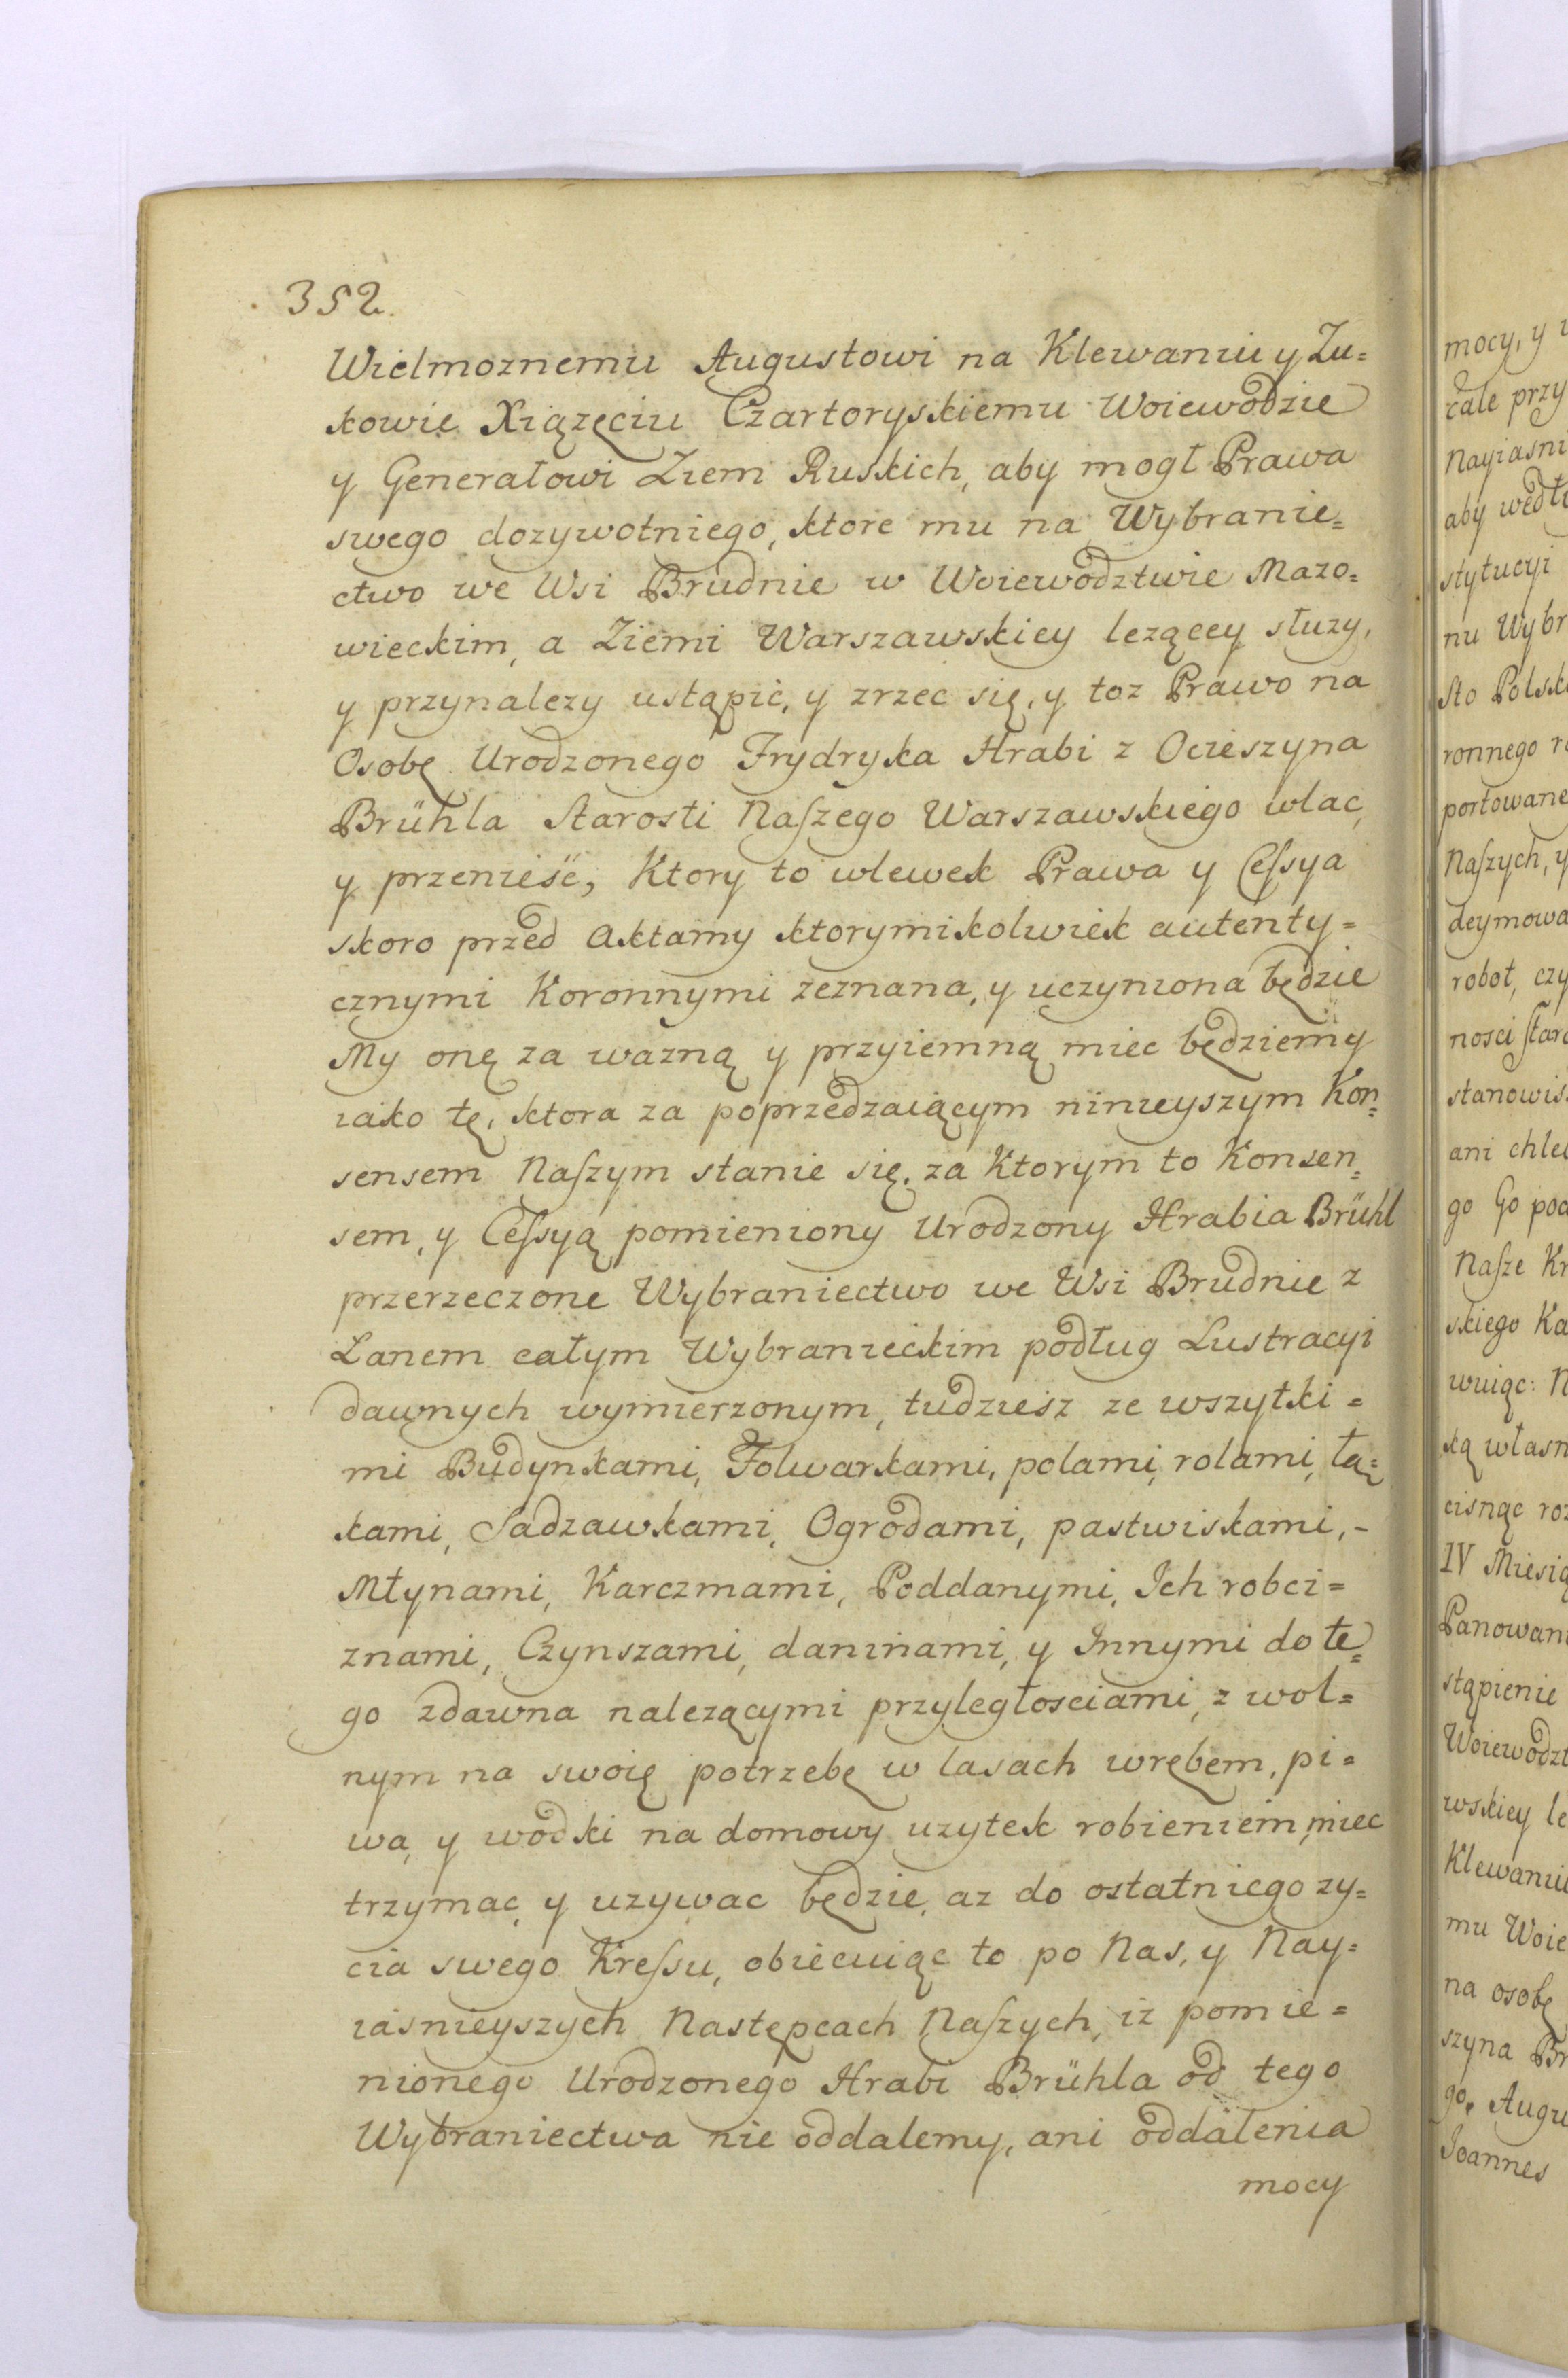 352.
Wielmoznemu Augustowi na Klewaniu y Zu=
kowie Xiązęciu Czartoryskiemu Woiewodzie
y Generałowi Ziem Ruskich, aby mogł Prawa
swego dozywotniego, ktore mu na Wybranie=
ctwo we Wsi Brudnie w Woiewodztwie Mazo=
wieckim, a Ziemi Warszawskiey lezącey słuzy,
y przynalezy ustąpić, y zrzec się, y toz Prawo na
Osobę Urodzonego Frydryka Hrabi z Ocieszyna
Brühla Starosti Naszego Warszawskiego wlac,
y przenieść, Ktory to wlewek Prawa y Cessya
skoro przed Aktamy ktorymikolwiek autenty=
cznymi Koronnymi zeznana, y uczyniona będzie
My onę za wazną y przyiemną miec będziemy
iako tę, ktora za poprzedzaiącym ninieyszym Kon=
sensem Naszym stanie się, za Ktorym to Konsen=
sem, y Cessyą pomieniony Urodzony Hrabia Brühl
przerzeczone Wybraniectwo we Wsi Brudnie z
Łanem całym Wybranieckim podług Lustracyi
dawnych wymierzonym, tudziesz ze wszytki=
mi Budynkami, Folwarkami, polami, rolami, łą=
kami, Sadzawkami, Ogrodami, pastwiskami,-
Młynami, Karczmami, Poddanymi, Ich robci=
znami, Czynszami, daninami, y Innymi do te=
go zdawna nalezącymi przyległosciami, z wol=
nym na swoię potrzebę w lasach wrębem, pi=
wa, y wodki na domowy uzytek robieniem, miec
trzymac, y uzywac będzie, az do ostatniego zy=
cia swego Kressu, obiecuiąc to po Nas, y Nay=
iasnieyszych Następcach Naszych, iz pomie=
nionego Urodzonego Hrabi Brühla od tego
Wybraniectwa nie oddalemy, ani oddalenia
mocy
mocy, y
cale przy
Nayiasni
aby wedłu
stytucyi
nu Wybr
sto Polsk
ronnego r
portowane
Naszych, y
deymowa
robot, czy
nosci star
stanowis
ani chle
go Go pod
Nasze Kr
skiego Ka
wuiąc: N
ką własn
cisnąc roz
IV Miesią
Panowani
stąpienie
Woiewodzt
wskiey le
Klewaniu
mu Woie
na osobę
szyna Br
go, Augu
Joannes